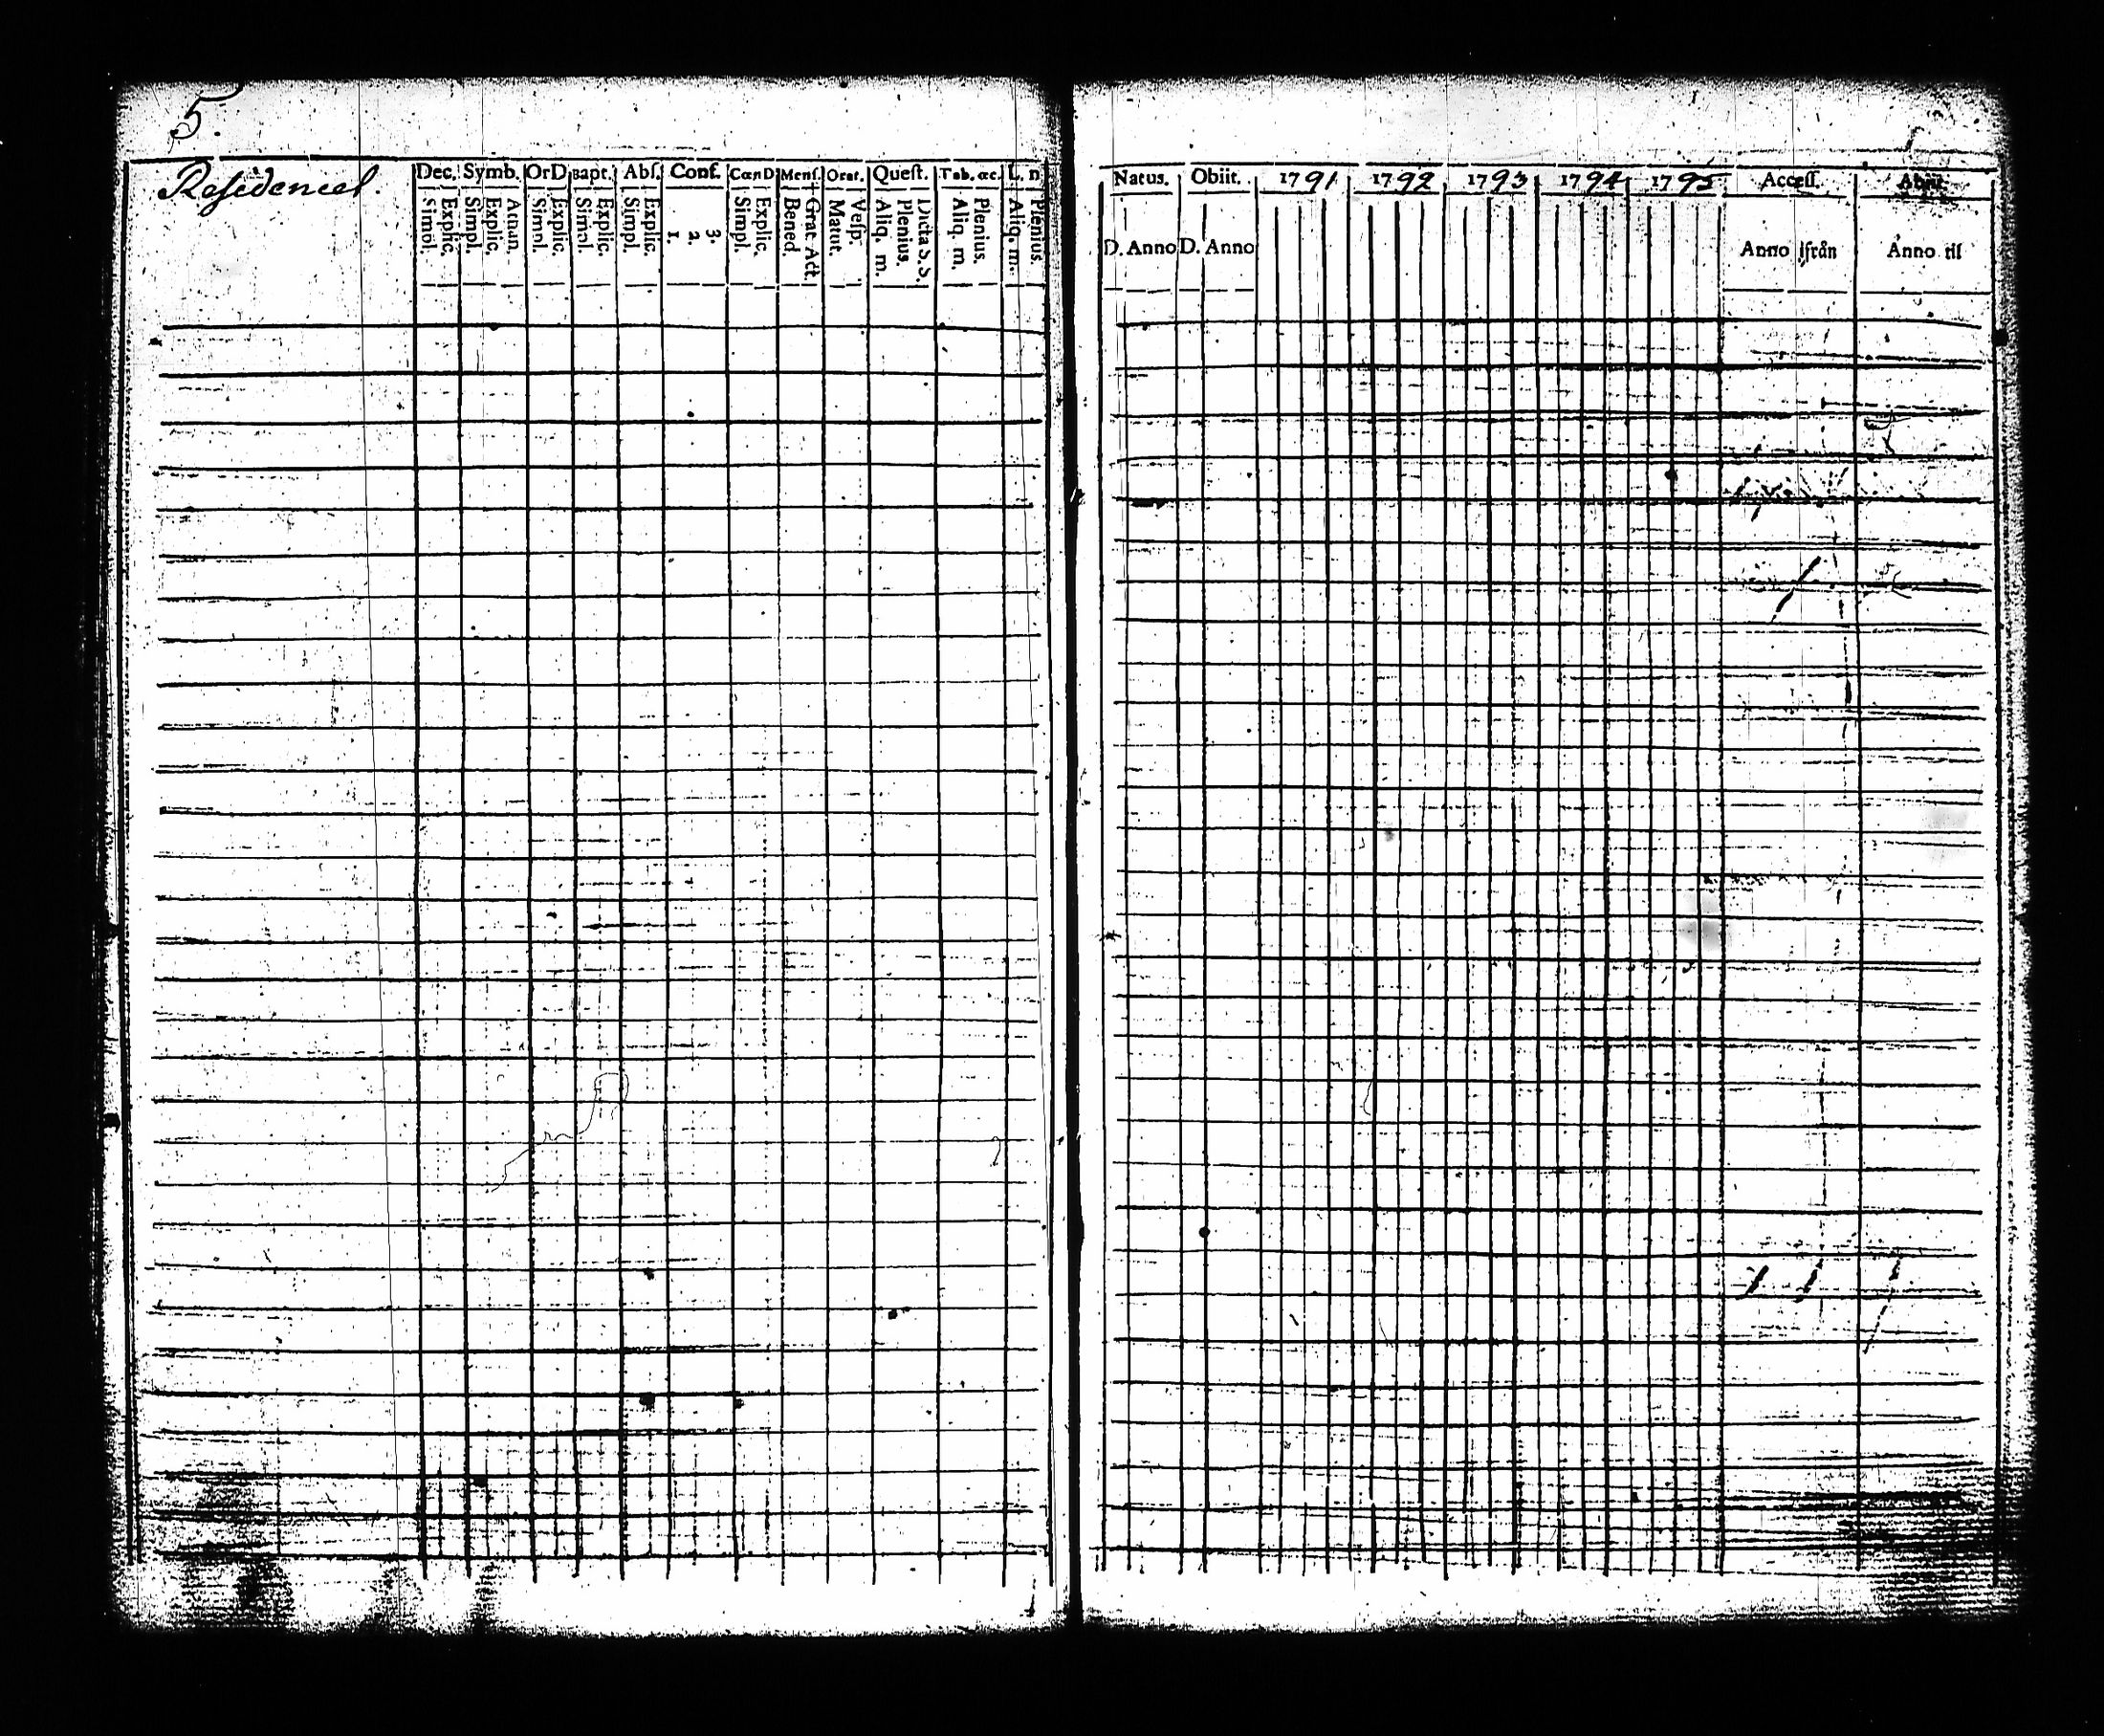 5.
Residencet.
Dec. Symb. Or D. Bapt. Abſ. Conf. Cœn D. Menſ. Orat. Queſt. Tab. œc. L. n.
Simpl. Explic. Simpl. Explic. Athan. Simpl. Explic. Simpl. Explic. Simpl. Explic. 1. 2. 3. Simpl. Explic. Bened. Grat. Act. Matut. Veſp. Aliq. m. Plenius. Dicta S. S. Aliq. m. Plenius. Aliq. m. Plenius.
Natus. Obiit. 1791 1792 1793 1794 1795 Acceſſ. Abiit.
D. Anno D. Anno Anno ifrån Anno til